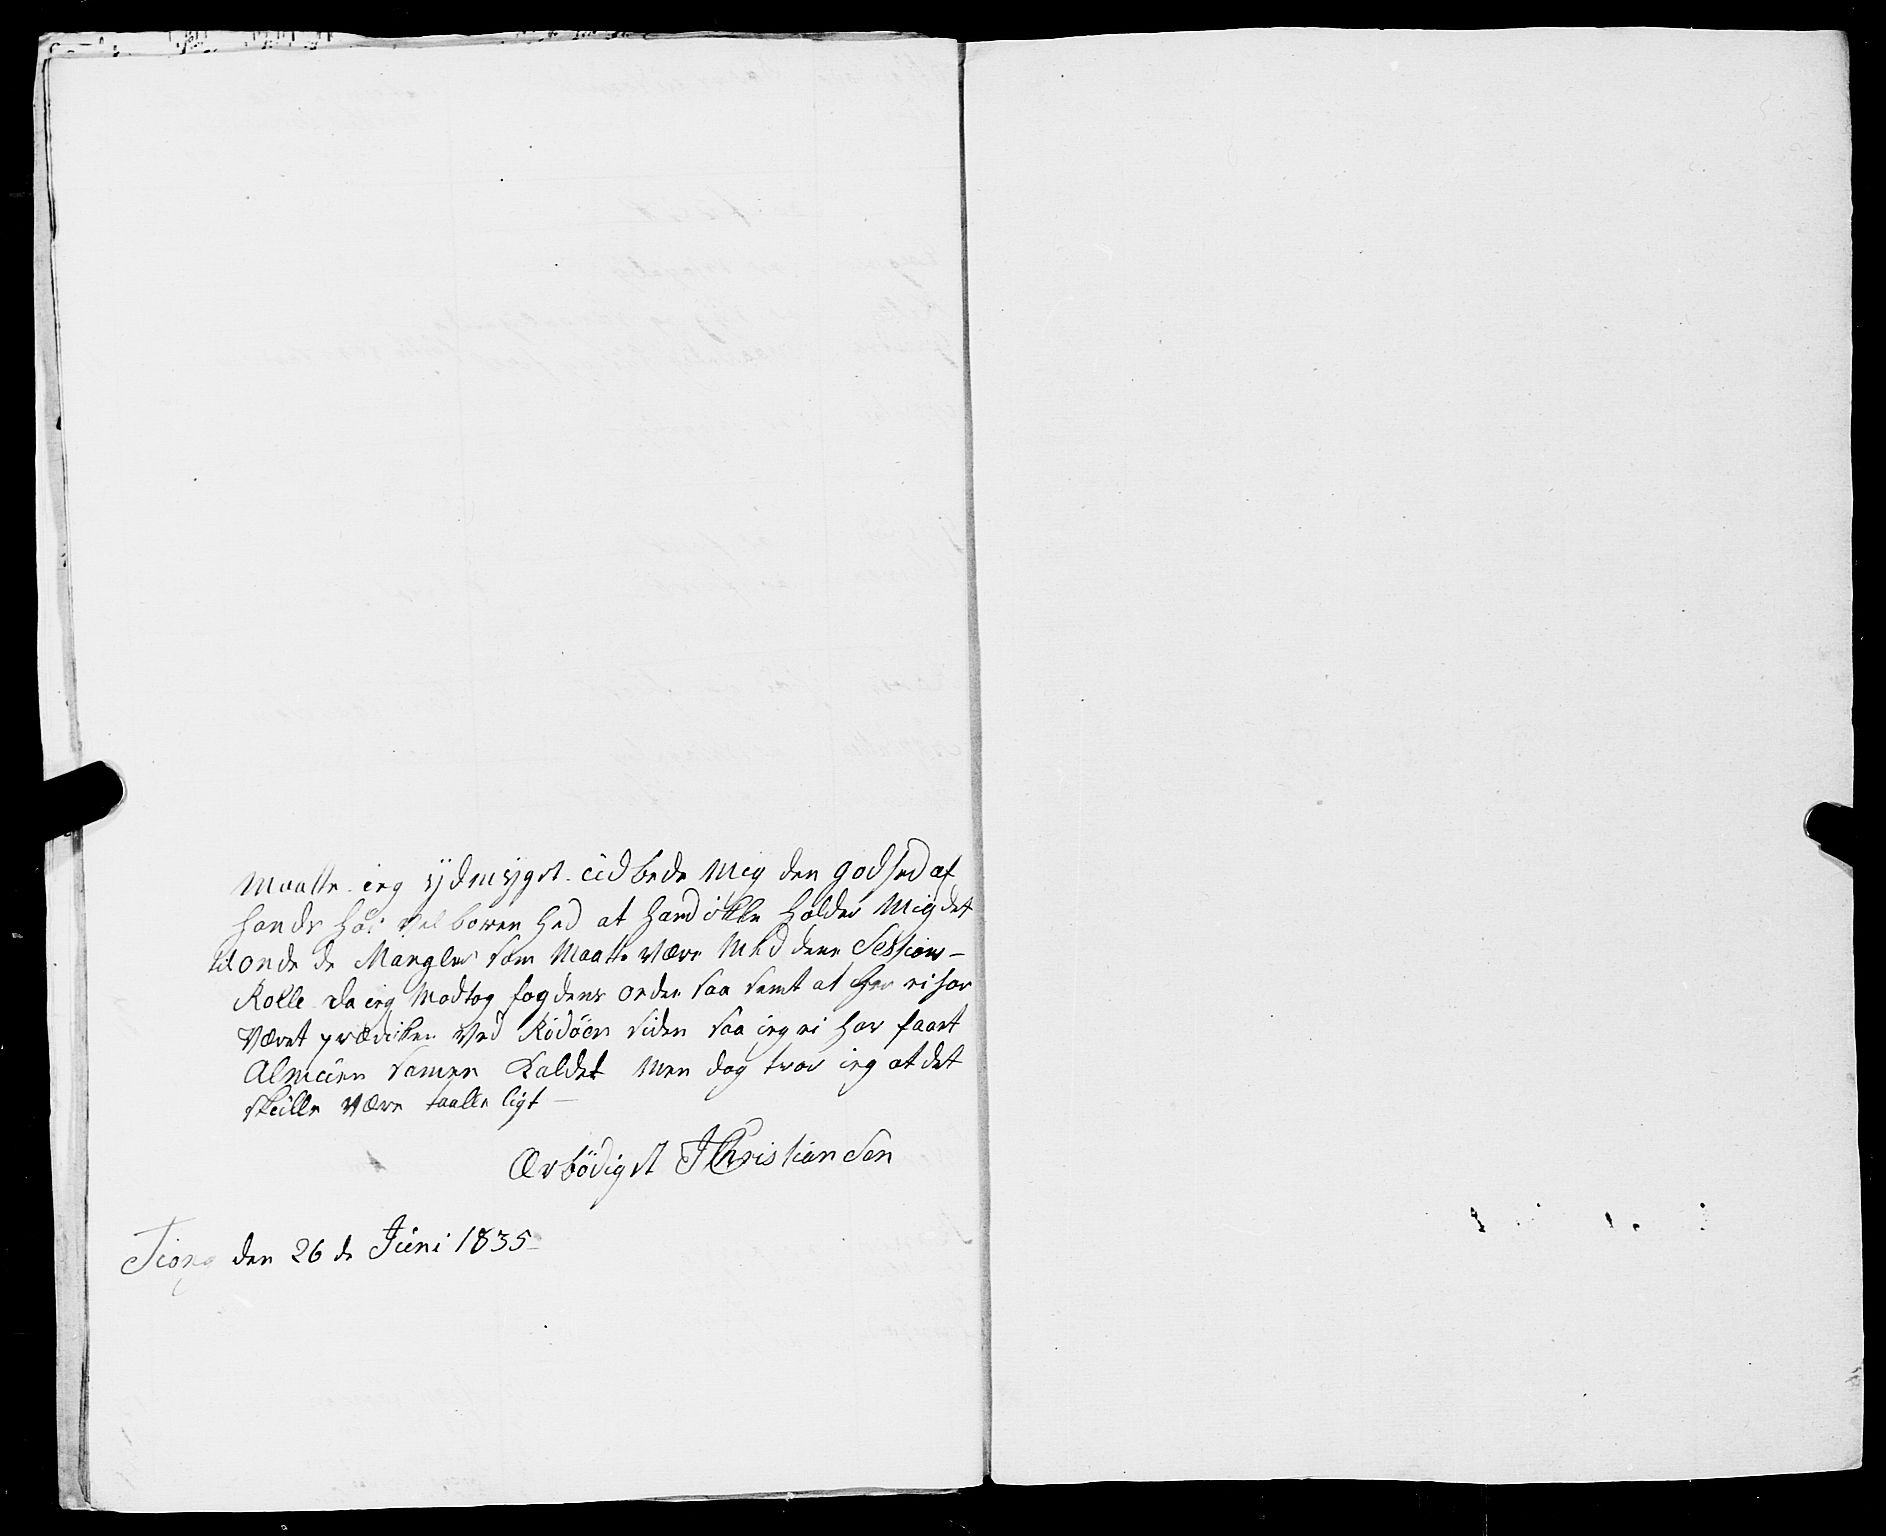 Maatte ieg ydmygst udbede Mig den godhed af
hands høi vel boren hed at hand ikke holder Mig det
til onde de Mangler som Maatte være Med dene Sessions-
Rolle da ieg Modtog fogdens order saa sent at her ei har
været prædiken ved Rødøen siden saa ieg ei har faaet
Almuen samen kaldet Men dog troer ieg at det
skulle være taalle ligt —
Ærbödigst JChristiansen
Tiong den 26 de Juni 1835